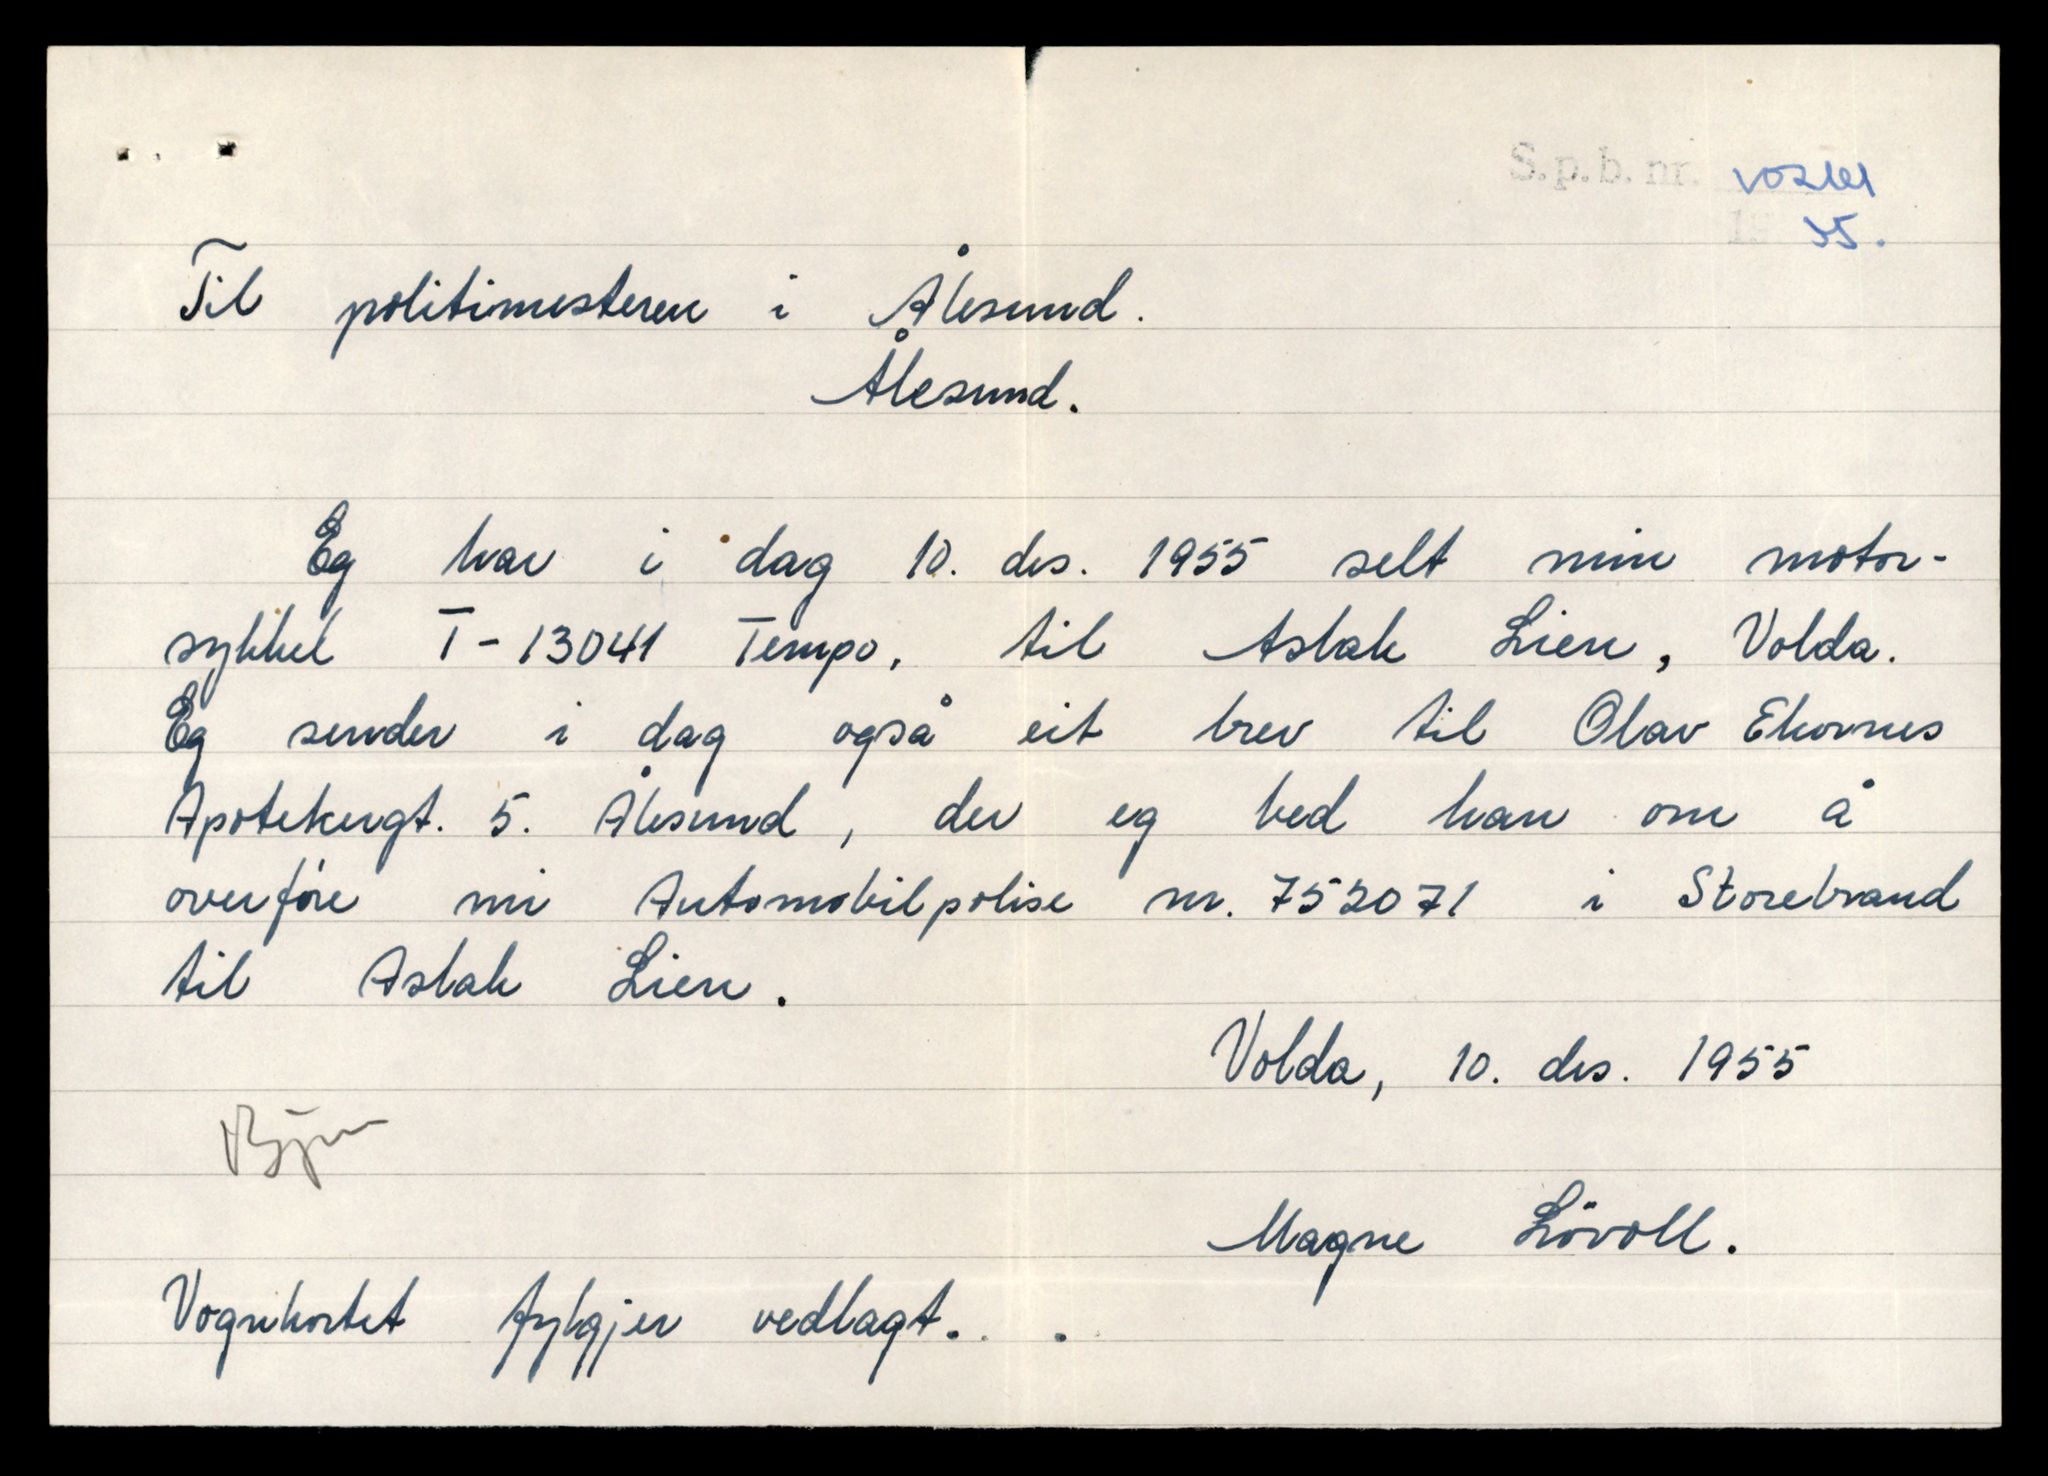 S.p.b. nr.
55.
Til politimesteren i Ålesund.
Ålesund.
Eg har i dag 10. des. 1955 selt min motor-
sykkel T-13041 Tempo, til Aslak Lien, Volda.
Eg sender i dag også eit brev til Olav Ekornes
Apotekergt. 5. Ålesund, der eg bed han om å
overföre mi Automobilpolise nr. 752071 i Storebrand
til Aslak Lien.
Volda, 10. des. 1955
Magne Lövoll.
Vognkortet fylgjer vedlagt.